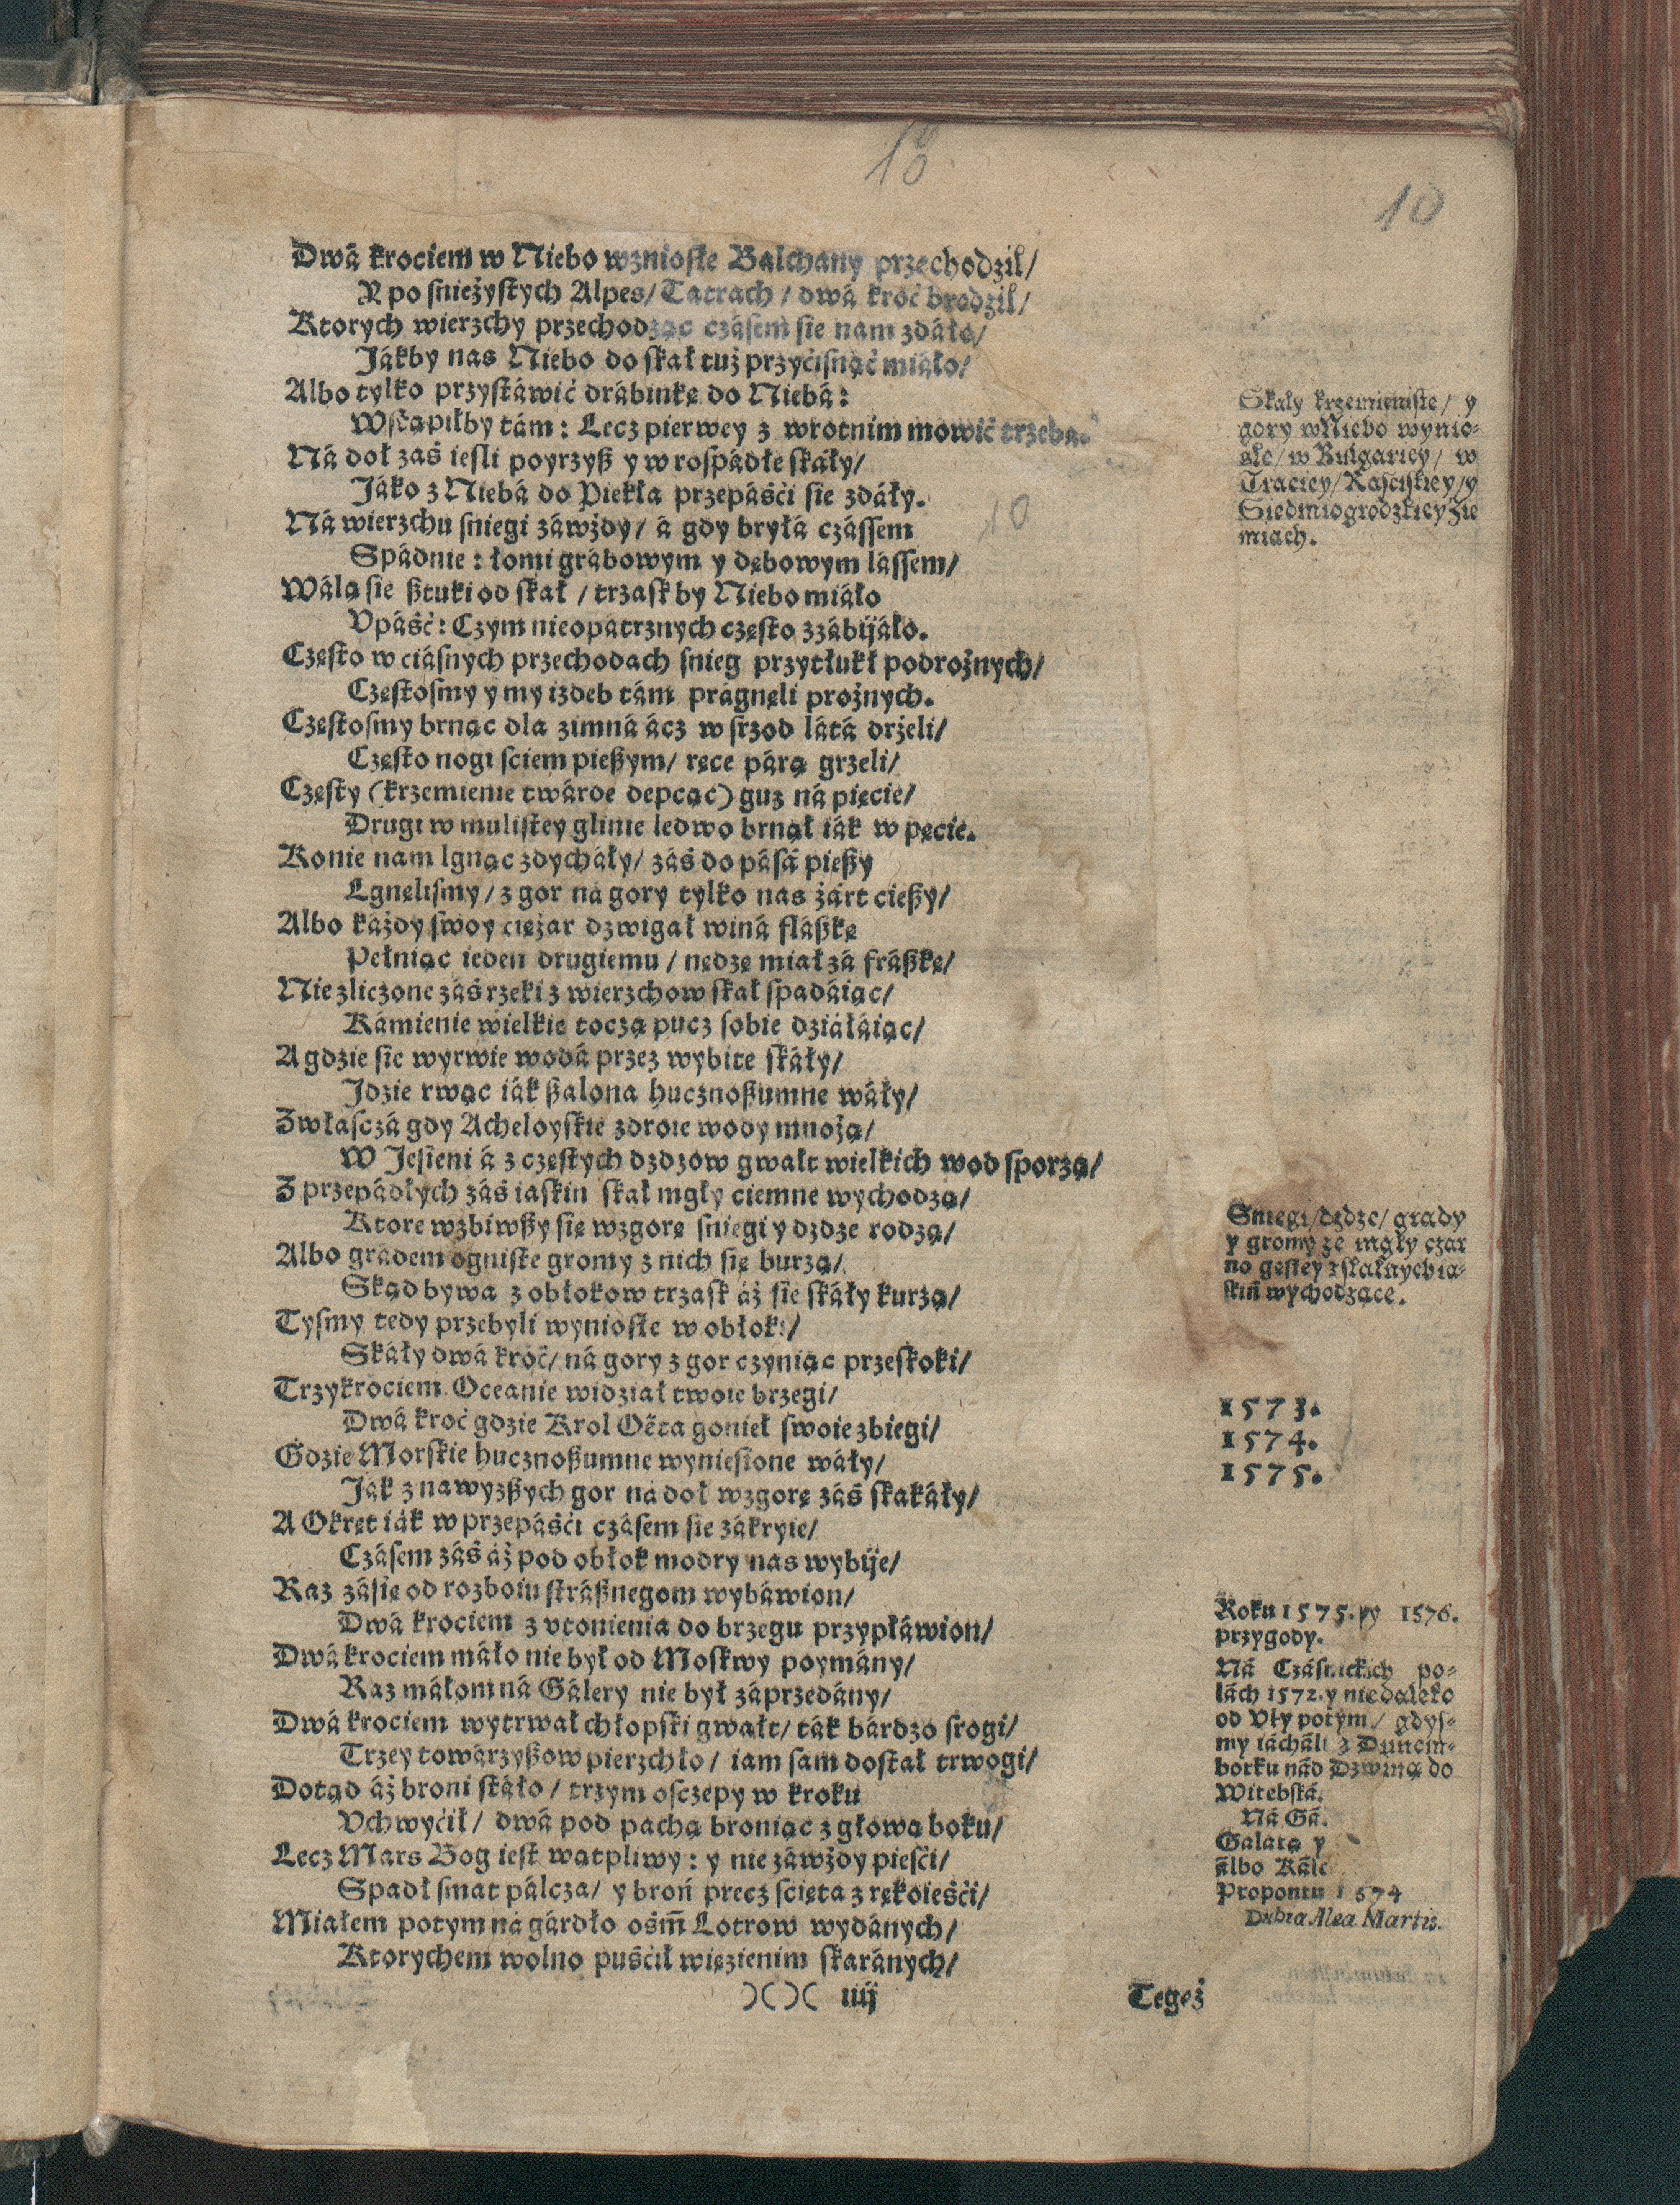 18
10
Dwá krociem w Niebo wzniosłe Balchany przechodził/
Y po śnieżystych Alpes/ Tatrach / dwá kroć brodził/
Ktorych wierzchy przechodząc czásem sie nam zdáło/
Jákby nas Niebo do skał tuż przyćisnąć miáło/
Albo tylko przystáwić drábinkę do Niebá:
Wstąpiłby tám: Lecz pierwey z wrotnim mowić trzebá.
Ná doł záś iesli poyrzyß y w rospádłe skáły/
Jáko z Niebá do Piekła przepáśći sie zdáły.
Ná wierzchu sniegi záwżdy/ á gdy bryłá czássem
10
Spádnie: łomi grábowym y dębowym lássem/
Wálą sie ßtuki od skał / trzask by Niebo miáło
Vpáść: Czym nieopátrznych często zzábijáło.
Często w ciásnych przechodach snieg przytłukł podrożnych/
Częstosmy y my izdeb tám prágnęli prożnych.
Częstosmy brnąc dla zimná ácz w srzod látá drżeli/
Często nogi sciem pießym/ ręce párą grzeli/
Częsty (krzemienie twárde depcąc) guz ná pięcie/
Drugi w mulistey glinie ledwo brnął iák w pęcie.
Konie nam lgnąc zdycháły/ záś do pásá pießy
Lgnęlismy/ z gor ná gory tylko nas żárt cießy/
Albo káżdy swoy ciężar dzwigał winá fláßkę
Pełniąc ieden drugiemu / nędzę miał zá fráßkę/
Niezliczone záś rzeki z wierzchow skał spadáiąc/
Kámienie wielkie toczą pucz sobie dziáłáiąc/
A gdzie sie wyrwie wodá przez wybite skáły/
Jdzie rwąc iák ßalona hucznoßumne wáły/
Zwłasczá gdy Acheloyskie zdroie wody mnożą/
W Jesieni á z częstych dzdzow gwałt wielkich wod sporzą/
Z przepádłych záś iaskin skał mgły ciemne wychodzą/
Ktore wzbiwßy się wzgorę sniegi y dzdze rodzą/
Albo grádem ogniste gromy z nich się burzą/
Skąd bywa z obłokow trzask áż sie skáły kurzą/
Tysmy tedy przebyli wyniosłe w obłoki/
Skáły dwá kroć/ ná gory z gor czyniąc przeskoki/
Trzykrociem Oceanie widział twoie brzegi/
Dwá kroć gdzie Krol Oëta gonieł swoie zbiegi/
Gdzie Morskie hucznoßumne wyniesione wáły/
Ják z nawyzßych gor ná doł wzgorę záś skakáły/
A Okręt iák w przepáśći czásem sie zákryie/
Czásem záś áż pod obłok modry nas wybije/
Raz zásię od rozboiu stráßnegom wybáwion/
Dwá krociem z vtonienia do brzegu przypłáwion/
Dwá krociem máło nie był od Moskwy poymány/
Raz máłom ná Gálery nie był záprzedány/
Dwá krociem wytrwał chłopski gwałt/ ták bárdzo srogi/
Trzey towárzyßow pierzchło / iam sam dostał trwogi/
Dotąd áż broni stáło / trzym osczepy w kroku
Vchwyćił/ dwá pod pachą broniąc z głową boku/
Lecz Mars Bog iest wątpliwy: y nie záwżdy pieśći/
Spadł smat pálcza/ y broń precz scięta z rękoieśći/
Miałem potym ná gárdło ośm̃ Lotrow wydánych/
Ktorychem wolno puśćił więzienim skaránych/
)( )( iiij
Tegoż
Skały krzemieniste/ y
gory w Niebo wynio-
słe/ w Bulgariey/ w
Traciey/ Rasciskiey/ y
Siedmiogrodzkiey Zie
miach.
Sniegi/ dędze/ grady
y gromy ze mgły czar
no gęstey z skałnych ia-
skiñ wychodzące.
1573.
1574.
1575.
Roku 1575. y 1576.
przygody.
Ná Czásnickich po-
lách 1572. y niedaleko
od Vły potym/ gdys-
my iácháli z Dunem-
borku nád Dzwiną do
Witebská.
Ná Gá.
Galatą y
álbo Kálc
Propontu 1574
Dubia Alea Martis.